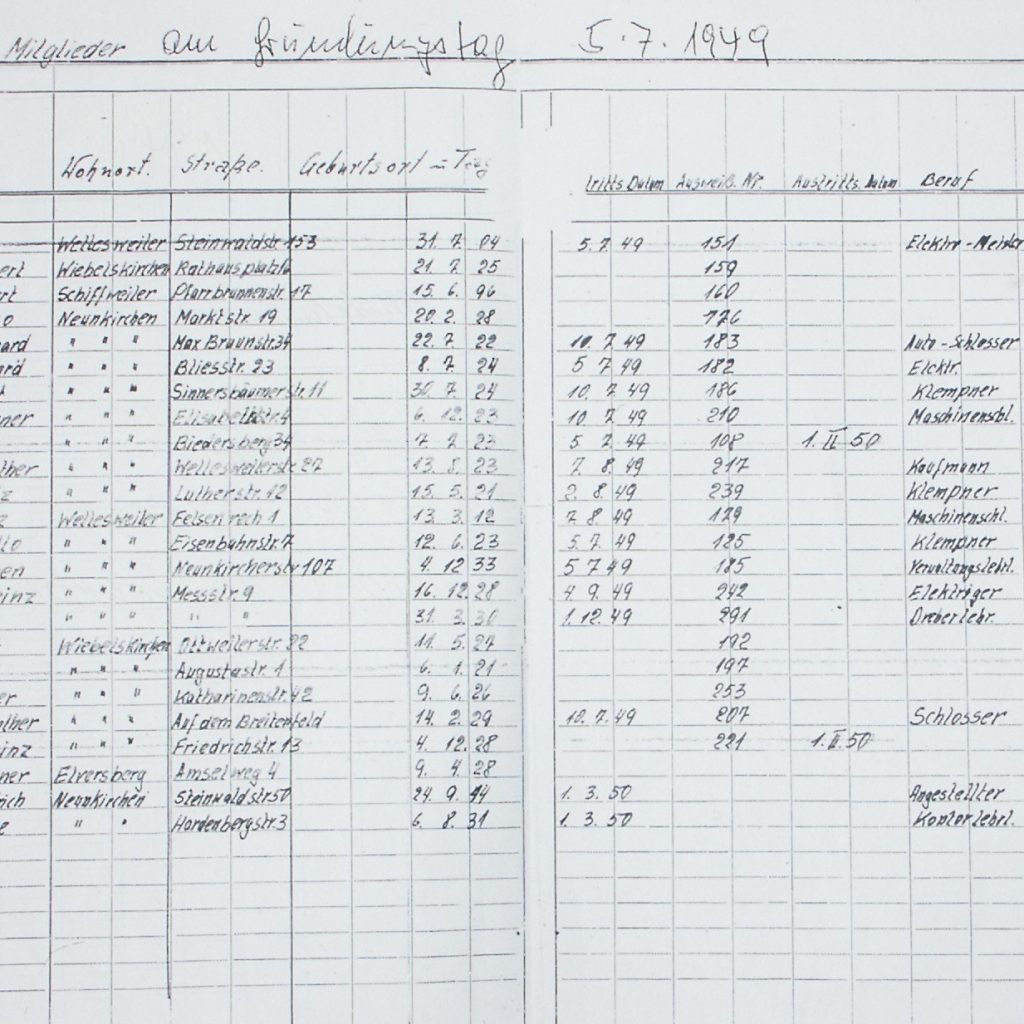 Mitglieder am Gründungstag 5.7.1949
Wohnort. Straße. Geburtsort - Tag tritts Datum Ausweiß. Nr. Austritts. Datum Beruf
Wellesweiler Steinwaldstr. 153 31. 7. 04 5. 7. 49 151 Elektro-Meister
ert Wiebelskirchen Rathausplatz 21. 7. 25 159
rt Schiffweiler Pfarrbrunnenstr. 17 15. 6. 96 160
o Neunkirchen Marktstr. 19 20. 2. 28 776
ard " " " Max Braunstr. 34 22. 7. 22 10. 7. 49 183 Auto-Schlosser
ard " " " Bliesstr. 23 8. 7. 24 5 7 49 182 Elektr.
t " " " Sinnersbäumerstr. 11 30. 7. 24 10. 7. 49 186 Klempner
ner " " " Elisabethstr. 4 6. 12. 23 10 7. 49 210 Maschinenschl.
" " " Biedersberg 34 7 2 23 5 7. 49 108 1. II 50
lther " " " Wellesweilerstr. 27 13. 8. 23 7 8. 49 217 Kaufmann
z " " " Lutherstr. 12 15. 5. 21 2. 8. 49 239 Klempner
z Wellesweiler Felsenrech 1 13. 3. 12 7 8. 49 179 Maschinenschl.
tto " " " Eisenbahnstr. 7 12. 6. 23 5. 7. 49 125 Klempner
en " " " Neunkircherstr 107 4. 12 33 5 7 49 185 Verwaltungslehrl.
einz " " " Messstr. 9 16. 12. 28 4 9. 49 242 Elektriger
" " " " " 31. 3. 30 1. 12. 49 291 Dreherlehr.
Wiebelskirchen Ottweilerstr. 22 11. 5. 27 192
" " " Augustastr. 1 6. 1. 21 197
er " " " Katharinenstr. 42 9. 6. 26 253
nther " " " Auf dem Breitenfeld 14. 2. 29 10. 7. 49 207 Schlosser
inz " " " Friedrichstr. 13 4. 12. 28 221 1. II. 50
ner Elversberg Amselweg 4 9. 4. 28
rich Neunkirchen Steinwaldstr 50 24. 9. 14 1. 3. 50 Angestellter
e " " Hardenbergstr. 3 6. 8. 31 1. 3. 50 Kontorlehrl.